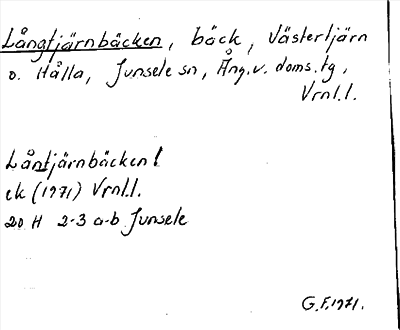 Långtjärnbäcken, bäck, Västertjärn
o. Hålla, Junsele sn, Ång.v. doms.tg,
Vrnl.l.
Låntjärnbäcken!
ek (1971) Vrnl.l.
20 H 2-3 a-b Junsele
G.F. 1971.